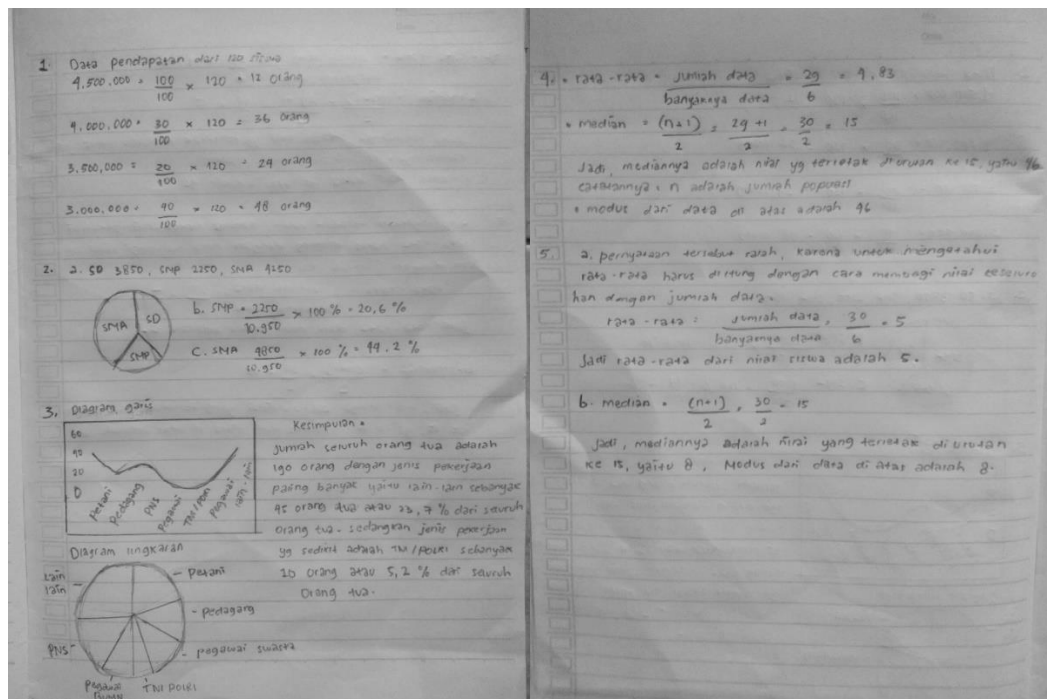 1. Data pendapatan dari 120 siswa
4.500.000 = 100/100 × 120 = 12 orang
4.000.000 = 30/100 × 120 = 36 orang
3.500,000 = 20/100 × 120 = 24 orang
3.000,000 = 40/100 × 120 = 48 orang
2. a. SD 3850, SMP 2250, SMA 4250
SMA SD SMP
b. SMP = 2250/10.950 × 100 % = 20,6 %
C. SMA 4850/10.950 × 100 % = 44.2 %
3, Diagram garis
60
40
20
0
Petani Pedagang PNS Pegawai TNI/Polri Pegawai lain-lain
Kesimpulan =
Jumlah seluruh orang tua adalah
190 orang dengan jenis pekerjaan
paling banyak yaitu lain-lain sebanyak
45 orang atua atau 23,7 % dari seluruh
orang tua. sedangkan jenis pekerjaan
yg sedikit adalah TNI/POLRI sebanyak
10 orang atau 5,2 % dari seluruh
Orang tua.
Diagram lingkaran
Lain lain
- Petani
- Pedagang
- pegawai swasta
TNI POLRI
Pegawai
PNS
4. • rata-rata = jumlah data/banyaknya data = 29/6 = 4,83
• median = (n+1)/2 = 29+1/2 = 30/2 = 15
Jadi, mediannya adalah nilai yg terletak diurutan ke 15, yaitu 46
catatannya: n adalah jumlah populasi
• modus dari data di atas adalah 46
5. a. pernyataan tersebut salah, karena untuk mengetahui
rata-rata harus dihitung dengan cara membagi nilai keseluru
han dengan jumlah data.
rata-rata = jumlah data/banyaknya data = 30/6 = 5
Jadi rata-rata dari nilai siswa adalah 5.
b. median = (n+1)/2 = 30/2 = 15
Jadi, mediannya adalah nilai yang terletak di urutan
ke 15, yaitu 8, Modus dari data di atas adalah 8.